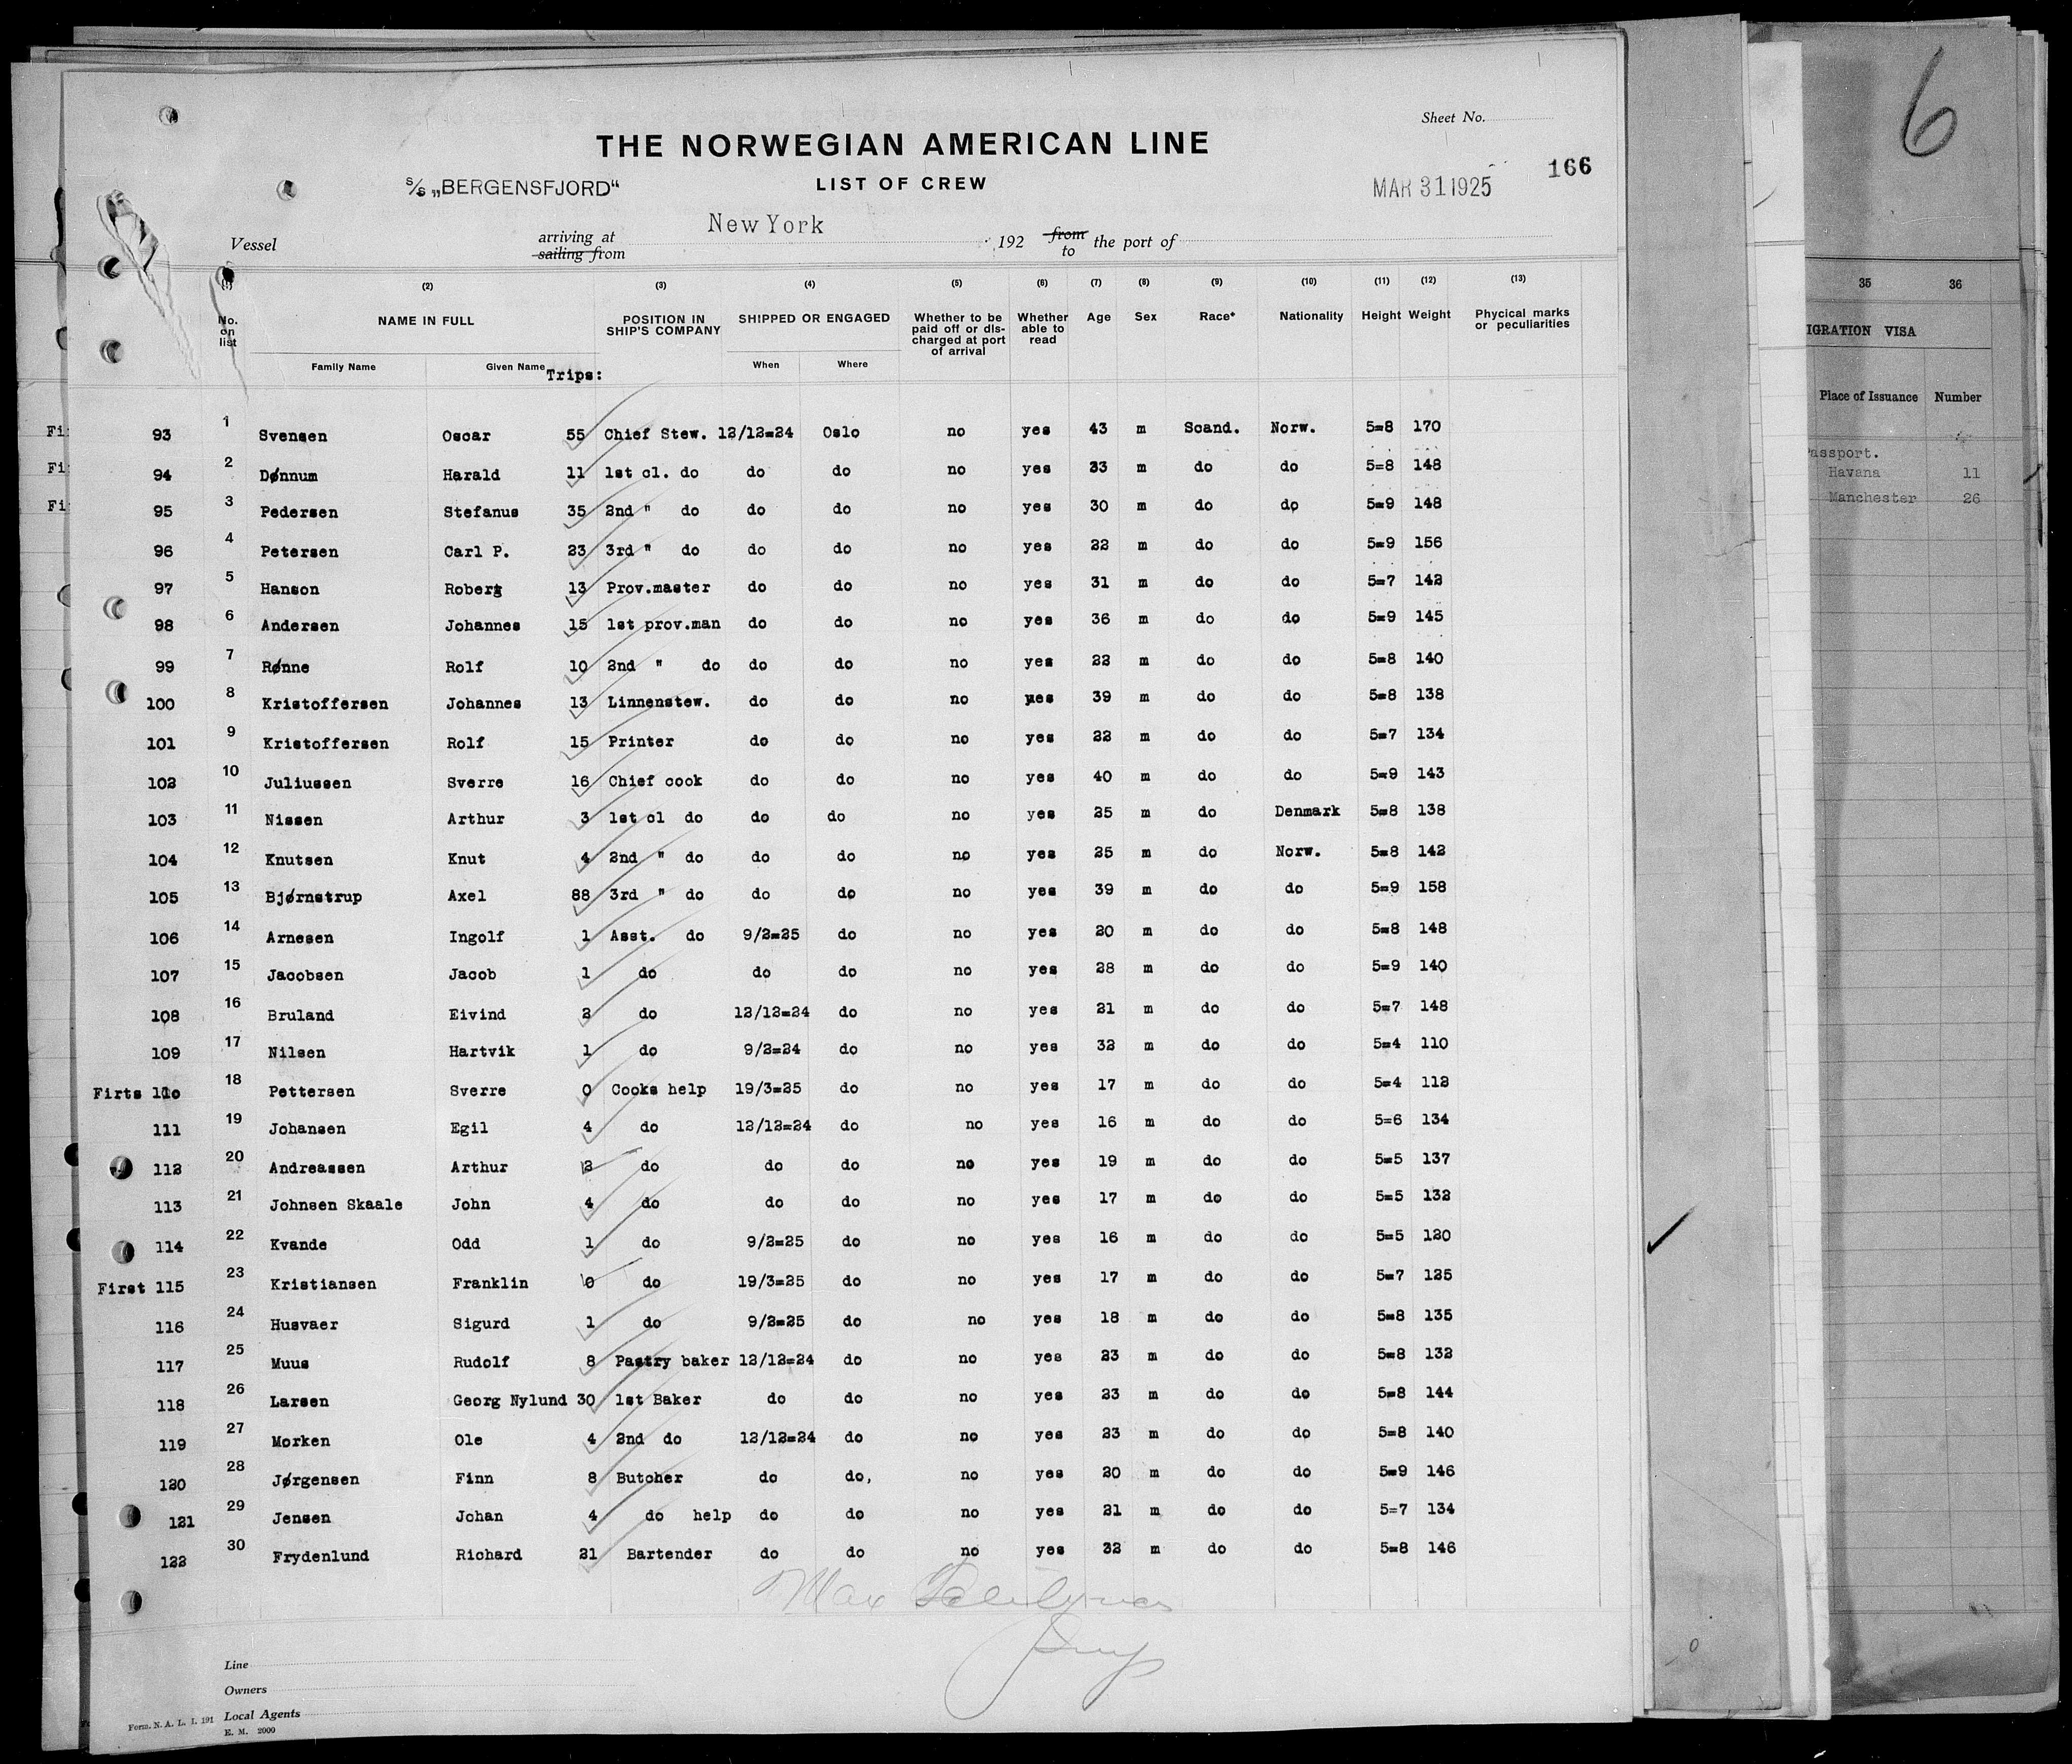 6
Sheet No.
THE NORWEGIAN AMERICAN LINE
166
s/s „BERGENSFJORD“ LIST OF CREW MAR 31 1925
New York
Vessel arriving at sailing from 192 from to the port of
(1) (2) (3) (4) (5) (6) (7) (8) (9) (10) (11) (12) (13)
No. on list NAME IN FULL POSITION IN SHIP'S COMPANY SHIPPED OR ENGAGED Whether to be paid off or discharged at port of arrival Whether able to read Age Sex Race* Nationality Height Weight Phycical marks or peculiarities
Family Name Given Name Trips: When Where
93 1 Svensen Oscar 55 Chief Stew. 12/12=24 Oslo no yes 43 m Scand. Norw. 5=8 170
94 2 Dønnum Harald 11 1st cl. do do do no yes 33 m do do 5=8 148
95 3 Pedersen Stefanus 35 2nd " do do do no yes 30 m do do 5=9 148
96 4 Petersen Carl P. 23 3rd " do do do no yes 22 m do do 5=9 156
97 5 Hanson Roberg 13 Prov.master do do no yes 31 m do do 5=7 142
98 6 Andersen Johannes 15 1st prov.man do do no yes 36 m do do 5=9 145
99 7 Rønne Rolf 10 2nd " do do do no yes 22 m do do 5=8 140
100 8 Kristoffersen Johannes 13 Linnenstew. do do no yes 39 m do do 5=8 138
101 9 Kristoffersen Rolf 15 Printer do do no yes 22 m do do 5=7 134
102 10 Juliussen Sverre 16 Chief cook do do no yes 40 m do do 5=9 143
103 11 Nissen Arthur 3 1st cl do do do no yes 25 m do Denmark 5=8 138
104 12 Knutsen Knut 4 2nd " do do do no yes 25 m do Norw. 5=8 142
105 13 Bjørnstrup Axel 88 3rd " do do do no yes 39 m do do 5=9 158
106 14 Arnesen Ingolf 1 Asst. do 9/2=25 do no yes 20 m do do 5=8 148
107 15 Jacobsen Jacob 1 do do do no yes 28 m do do 5=9 140
108 16 Bruland Eivind 2 do 12/12=24 do no yes 21 m do do 5=7 148
109 17 Nilsen Hartvik 1 do 9/2=24 do no yes 32 m do do 5=4 110
Firts 110 18 Pettersen Sverre 0 Cooks help 19/3=25 do no yes 17 m do do 5=4 112
111 19 Johansen Egil 4 do 12/12=24 do no yes 16 m do do 5=6 134
112 20 Andreassen Arthur 2 do do do no yes 19 m do do 5=5 137
113 21 Johnsen Skaale John 4 do do do no yes 17 m do do 5=5 132
114 22 Kvande Odd 1 do 9/2=25 do no yes 16 m do do 5=5 120
First 115 23 Kristiansen Franklin 0 do 19/3=25 do no yes 17 m do do 5=7 125
116 24 Husvaer Sigurd 1 do 9/2=25 do no yes 18 m do do 5=8 135
117 25 Muus Rudolf 8 Pastry baker 12/12=24 do no yes 23 m do do 5=8 132
118 26 Larsen Georg Nylund 30 1st Baker do do no yes 23 m do do 5=8 144
119 27 Morken Ole 4 2nd do 12/12=24 do no yes 23 m do do 5=8 140
120 28 Jørgensen Finn 8 Butcher do do, no yes 20 m do do 5=9 146
121 29 Jensen Johan 4 do help do do no yes 21 m do do 5=7 134
122 30 Frydenlund Richard 21 Bartender do do no yes 32 m do do 5=8 146
Max
Line
Owners
Local Agents
Form. N. A. L. I. 191
E. M. 2000
Fi
Fi
Fi
35 36
IGRATION VISA
Place of Issuance Number
assport.
Havana 11
Manchester 26